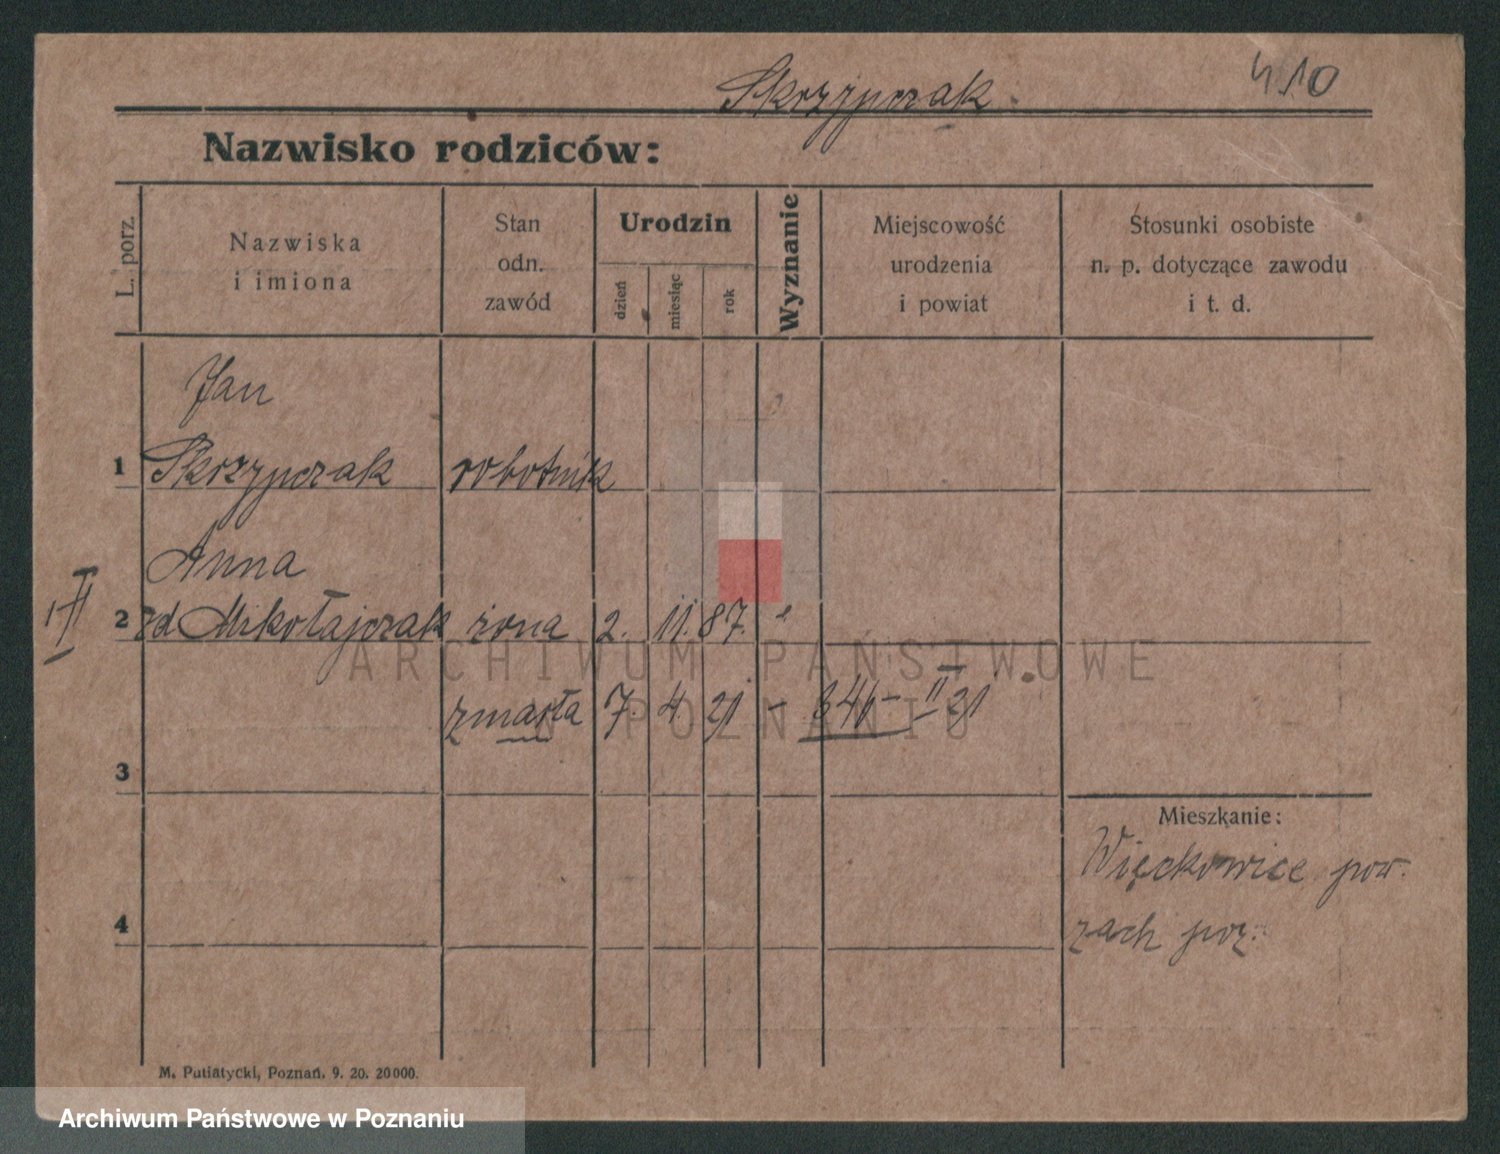 Skrzypczak
410
Nazwisko rodziców:
L. porz.
Nazwiska
i imiona
Stan
odn.
zawód
Urodzin
dzień
miesiąc
rok
Wyznanie
Miejscowość
urodzenia
i powiat
Stosunki osobiste
n. p. dotyczące zawodu
i t. d.
Jan
1 Skrzypczak robotnik
Anna
2 zd Mikołajczak żona 2. 11. 87.
zmarła 7. 4. 21 – 346 – II 21
3
Mieszkanie:
Więckowice pow.
zach poz.
4
M. Putiatycki, Poznań. 9. 20. 20000.
ARCHIWUM PAŃSTWOWE
W POZNANIU
Archiwum Państwowe w Poznaniu